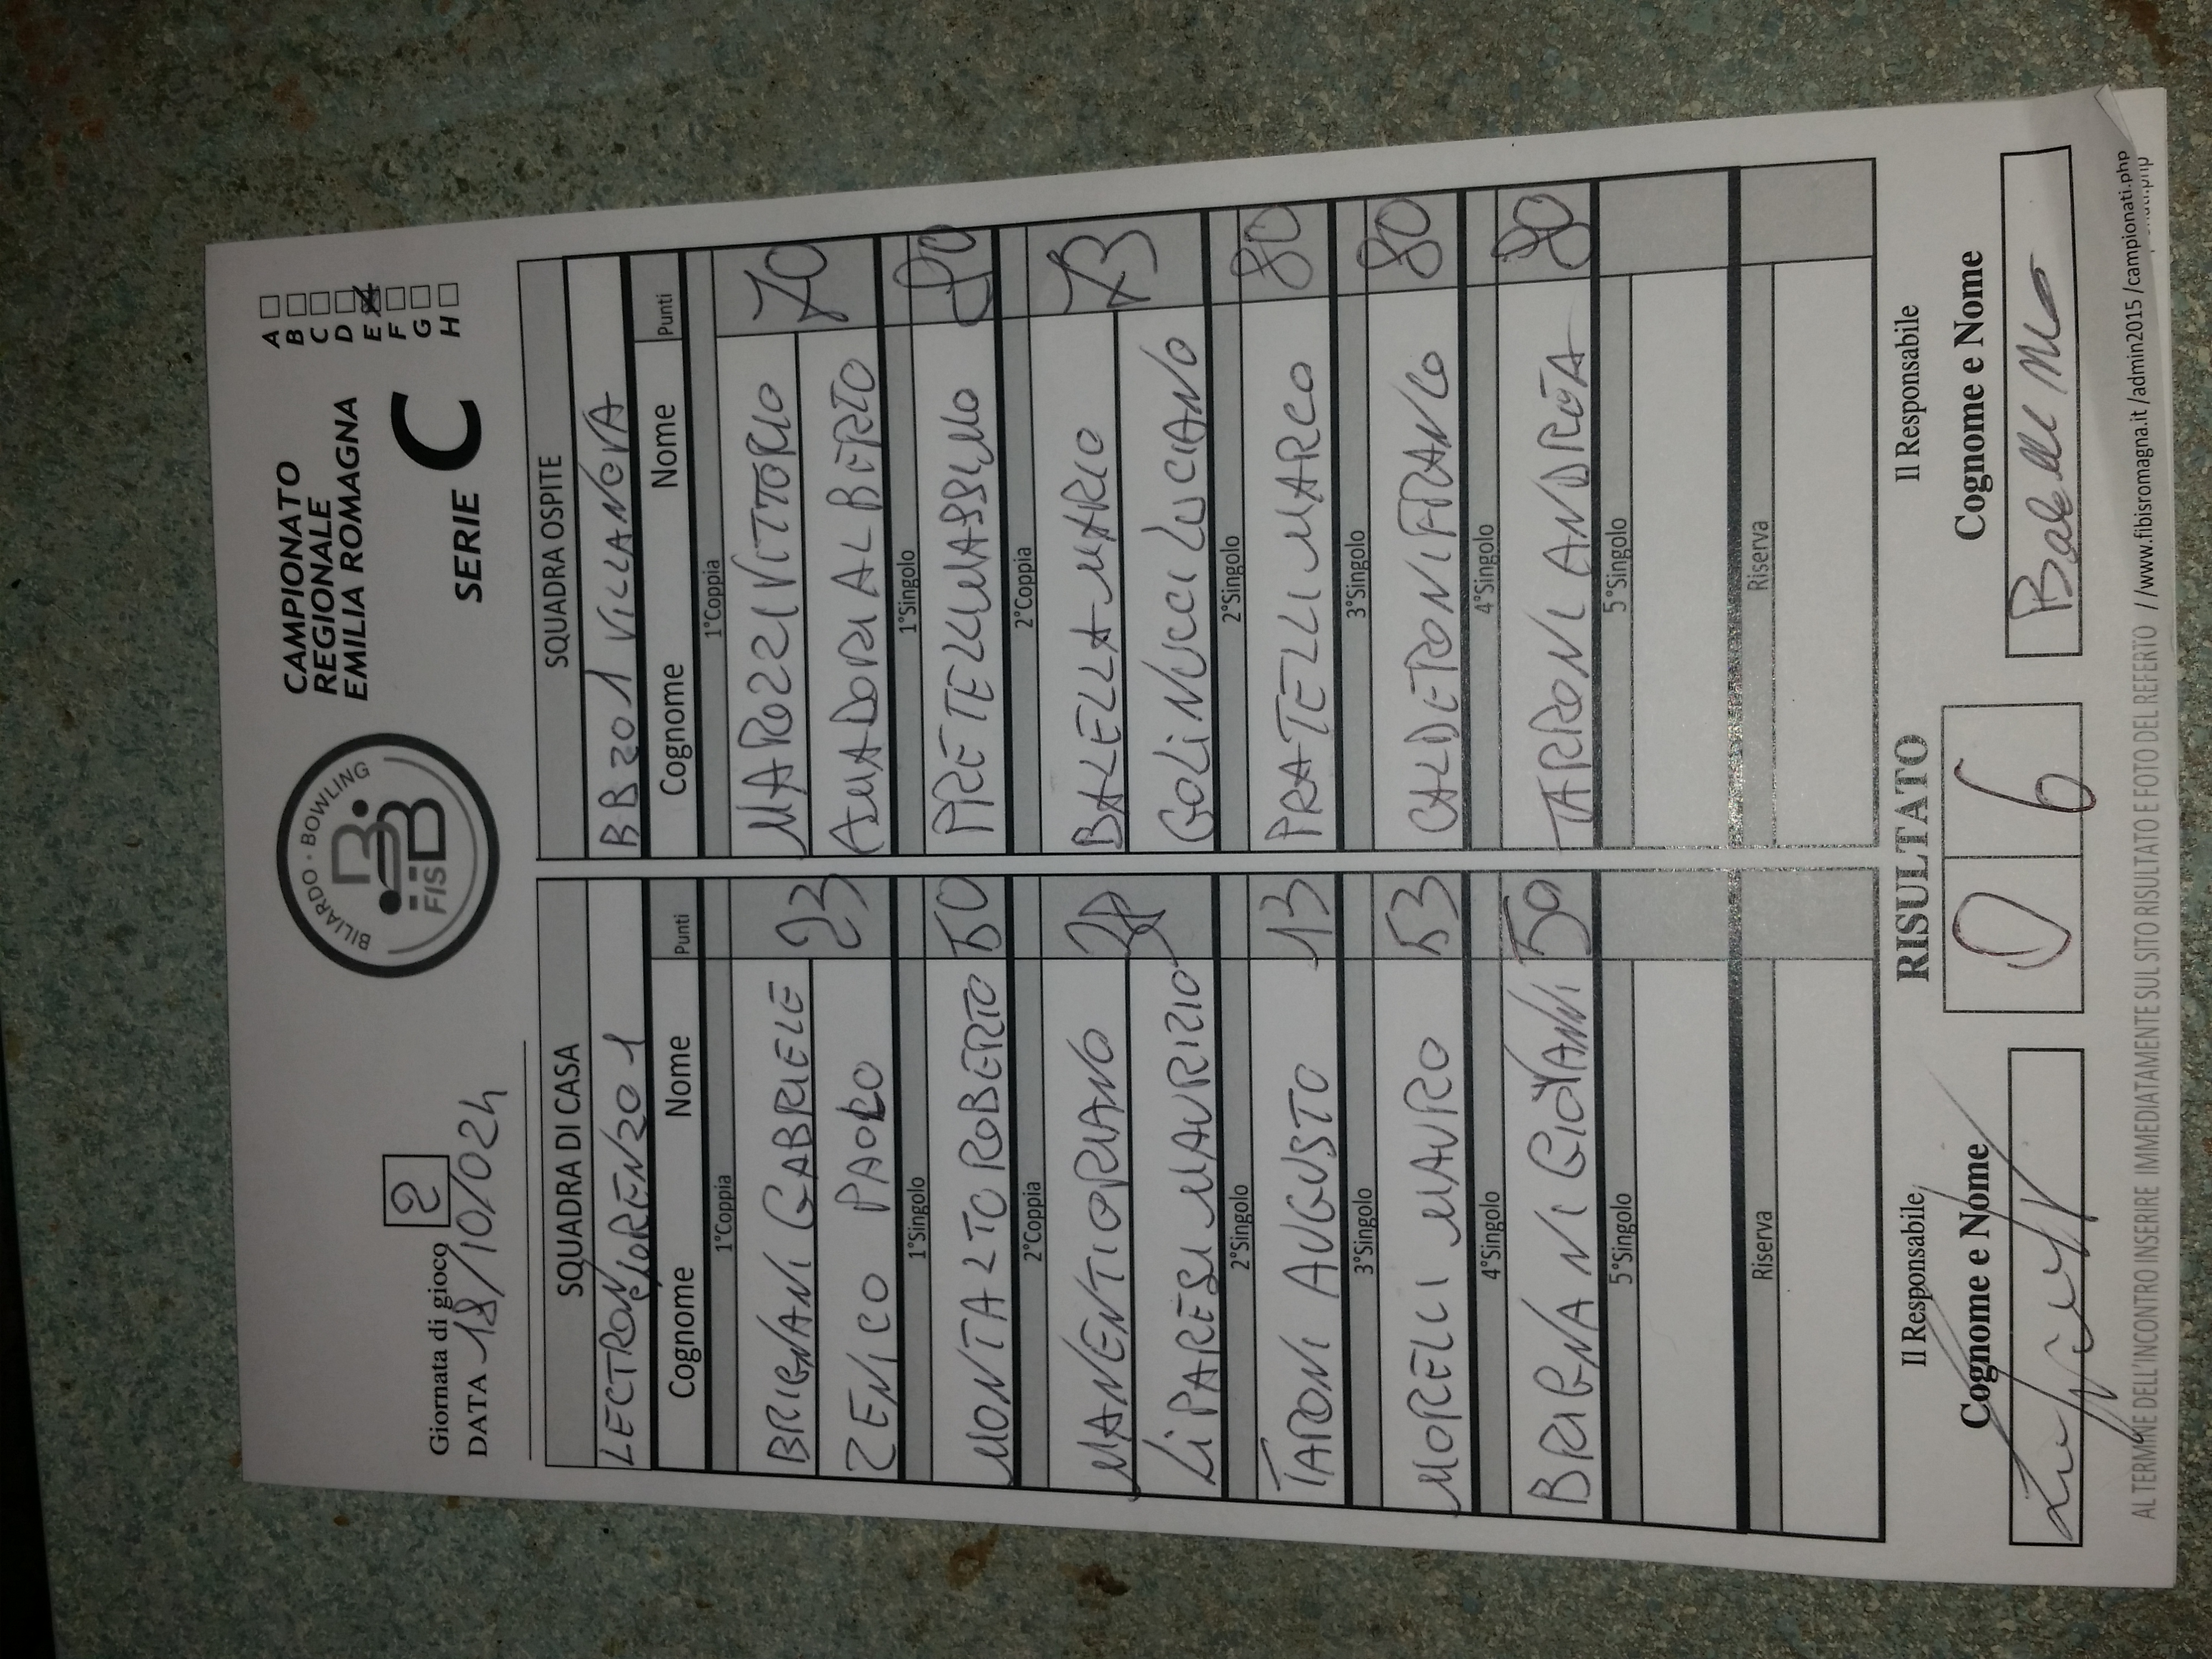 Giornata di gioco 2
DATA 18/10/024
BILIARDO · BOWLING
FISBB
CAMPIONATO
REGIONALE
EMILIA ROMAGNA
SERIE C
A
B
C
D
E X
F
G
H
SQUADRA DI CASA
LECTRON LORENZO 1
Cognome Nome Punti
1°Coppia
BRIGNANI GABRIELE 23
ZENICO PAOLO
1°Singolo
MONTALTO ROBERTO 50
2°Coppia
MANENTI ORIANO
LIPARESI MAURIZIO
2°Singolo
TARONI AUGUSTO 13
3°Singolo
MORELLI MAURO 53
4°Singolo
BRIGNANI GIOVANNI 59
5°Singolo
Riserva
SQUADRA OSPITE
BB 201 VILLANOVA
Cognome Nome Punti
1°Coppia
MAROZZI VITTORIO 70
AMADORI ALBERTO
1°Singolo
PRETELLI MASSIMO 80
2°Coppia
BALELLA MARIO 73
GOLINUCCI LUCIANO
2°Singolo
PRATELLI MARCO 80
3°Singolo
CALDERONI FRANCO 80
4°Singolo
TARRONI ANDREA 80
5°Singolo
Riserva
Il Responsabile
Cognome e Nome
RISULTATO
0 6
Il Responsabile
Cognome e Nome
AL TERMINE DELL'INCONTRO INSERIRE IMMEDIATAMENTE SUL SITO RISULTATO E FOTO DEL REFERTO //www.fibisromagna.it /admin2015 /campionati.php